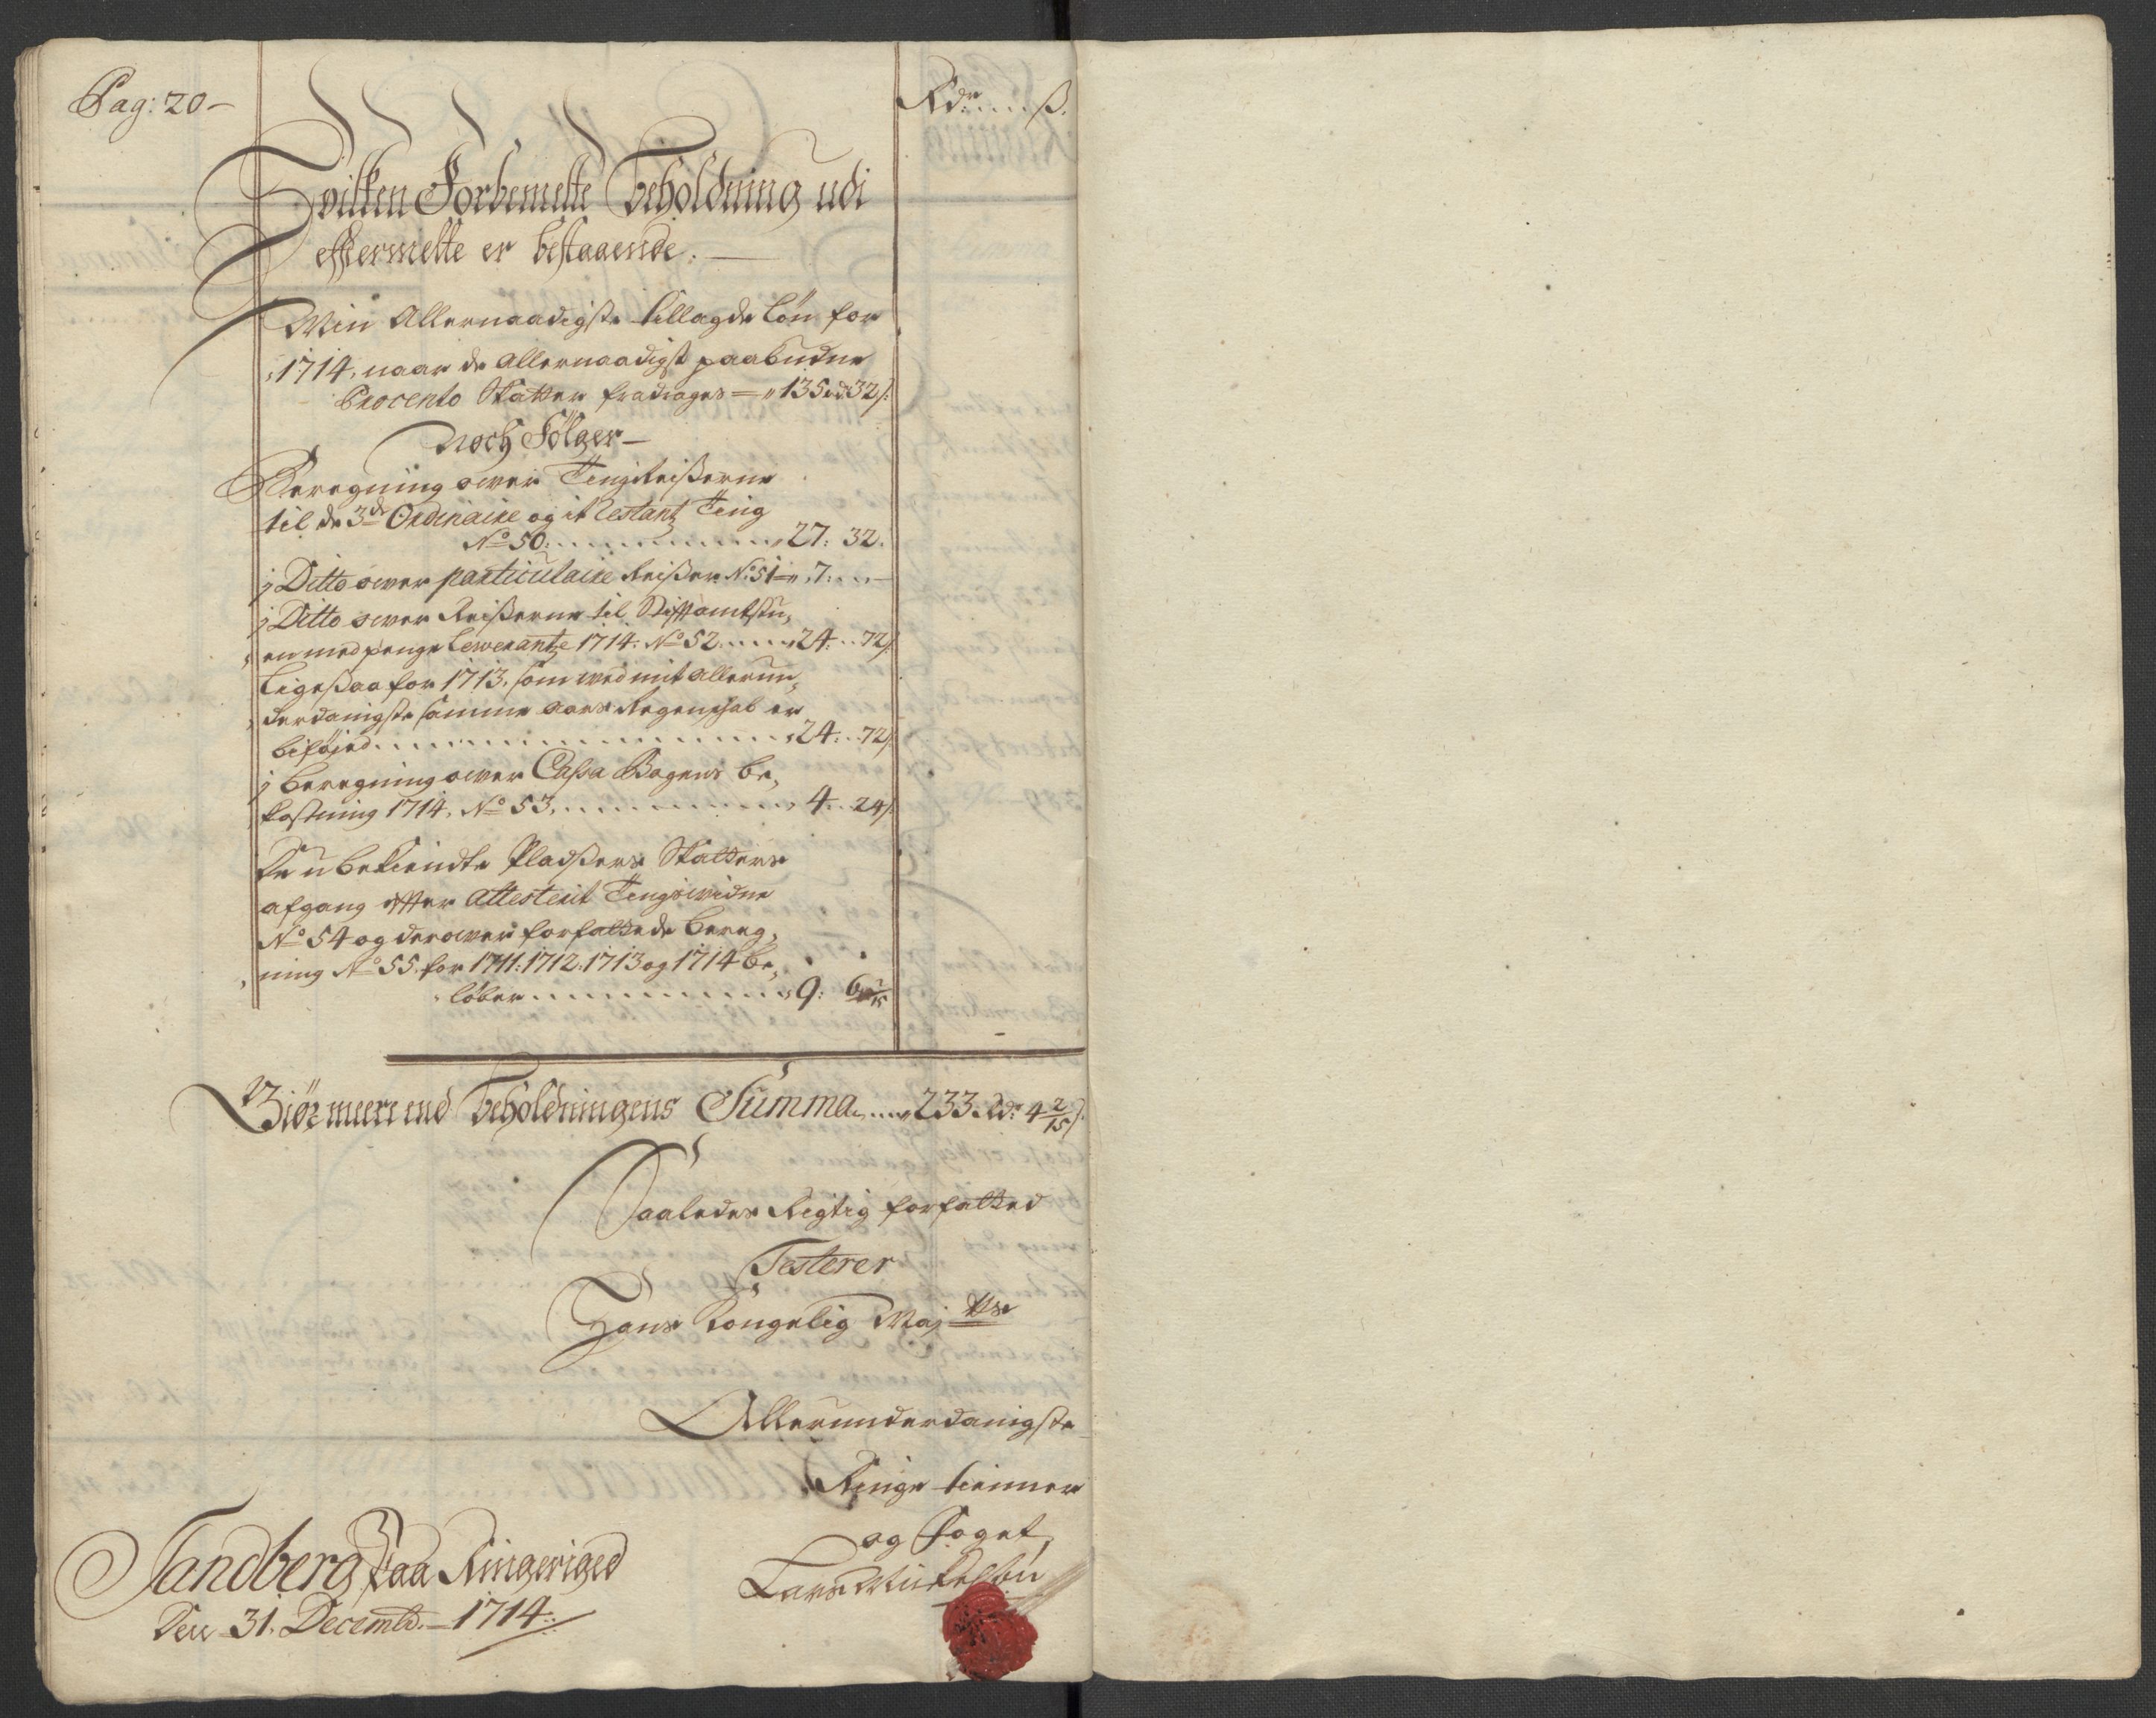 Pag: 20 -
Rdr ... ß.
Hvilken Forbemelte Beholdning udi
efftermelte er bestaaende. —
Min Allernaadigste tillagde Løn for
1714, naar de allernaadigst paabudne
Procento Skatter fradrages = " 135 rd 32 ß.
Noch Følger —
Beregning ower Tingreißerne
til de 3de Ordinaire og it Restantz Ting
No 50 . . . . . . . . . . . . 27: 32.
j Ditto ower particulaire Reißer No 51 = " 7: . . —
j Ditto ower Reißerne til Stifftamtstu,
en med penge Lewerantze 1714. No 52 . . . . . 24: . . 72 ß.
Ligeßaa for 1713. som wed mit allerun,
derdanigste samme aars Regenskab er
biføjed . . . . . . . . . . . . . . . . . 24: . . 72 ß.
j Beregning ower Cassa Bogens be,
kostning 1714. No 53 . . . . . . . . . . 4: . . 24 ß.
De ubekiendte Pladßers Skatters
afgang effter Attesterit Tingswidne
No 54 og derower forfattede bereg,
ning No 55. for 1711: 1712. 1713 og 1714 be,
løber . . . . . . . . . . . . . 9:
Giør meere end Beholdningens Summa . . . . 233 Rdr 4 2/15 ß.
Saaledes Rigtig forfatted
Testerer
Hans Kongelig Maj tts
Allerunderdanigste
Ringe tienner
og Foget,
Lars Mickelsøn
Sandberg paa Ringeriged
Den 31. Decembr. 1714.